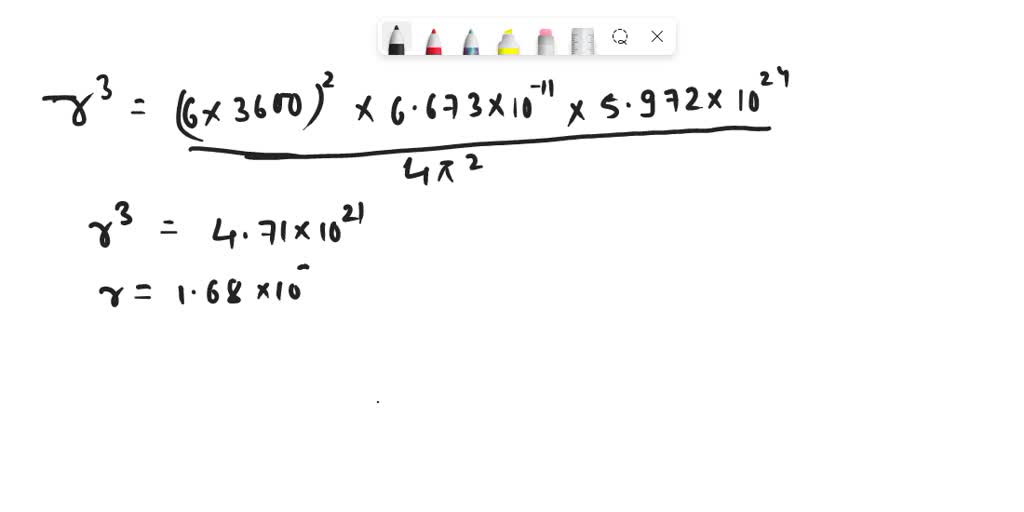 r³ = (6 × 3600)² × 6.673 × 10⁻¹¹ × 5.972 × 10²⁴
4π²
r³ = 4.71 × 10²¹
r = 1.68 × 10⁻